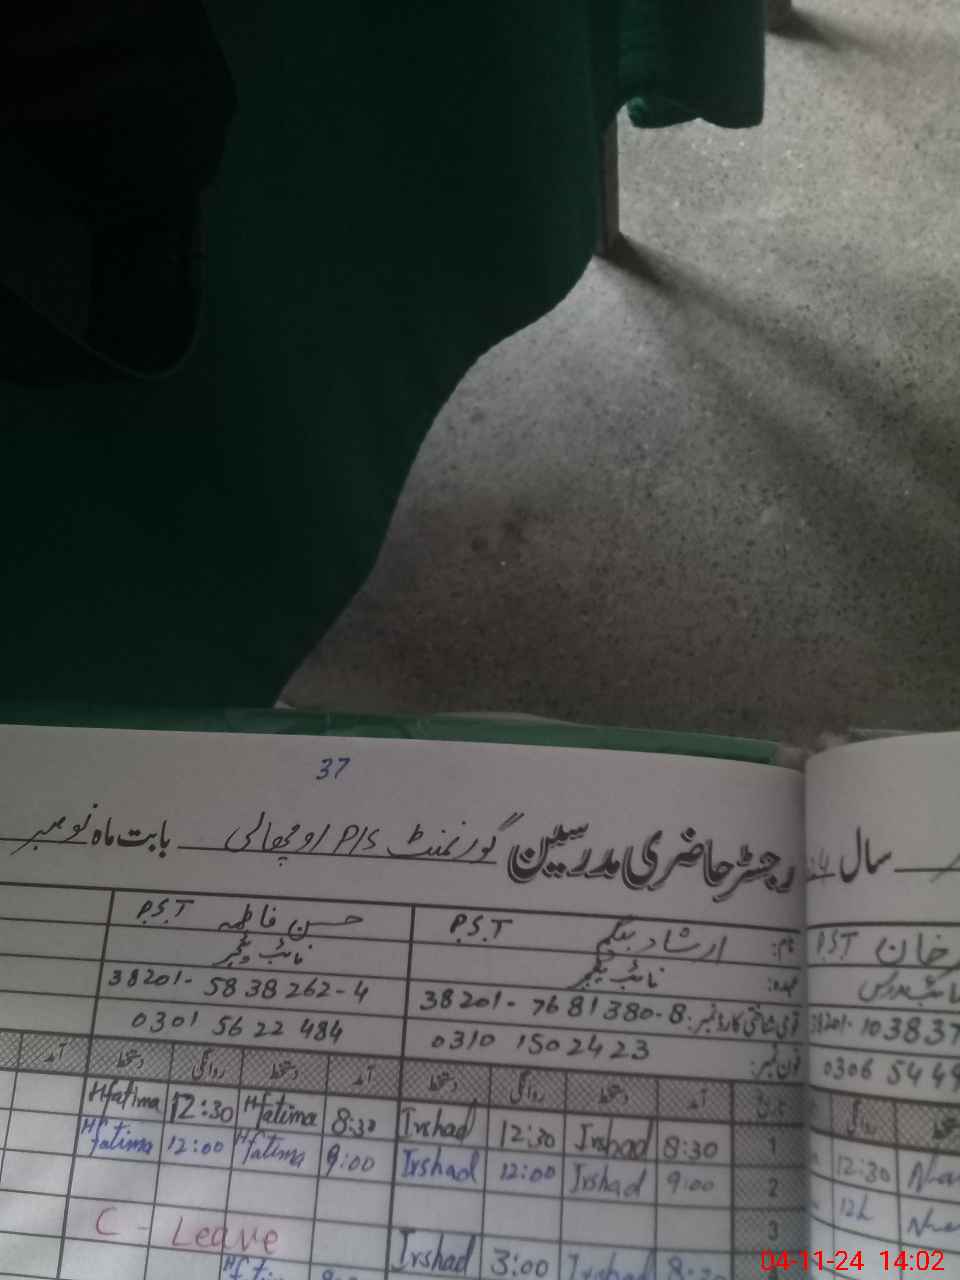 37
رجسٹر حاضری مدرسین گورنمنٹ P/S اوچھالی بابت ماہ نومبر
سال
نام: ارشاد بیگم P.S.T
حسن فاطمہ P.S.T
خان PST
عہدہ: نائب ٹیچر
نائب ٹیچر
نائب مدرس
قومی شناختی کارڈ نمبر: 38201-7681380-8
38201-5838262-4
38201-10383
فون نمبر: 0310 1502423
0301 5622484
0306 544
تاریخ آمد دستخط روانگی دستخط آمد دستخط روانگی دستخط آمد
روانگی
1 8:30 Irshad 12:30 Irshad 8:30 Hfatima 12:30 Hfatima
12:30
2 9:00 Irshad 12:00 Irshad 9:00 Hfatima 12:00 Hfatima
12
3
C - Leave
Irshad 3:00 Irshad
04-11-24 14:02